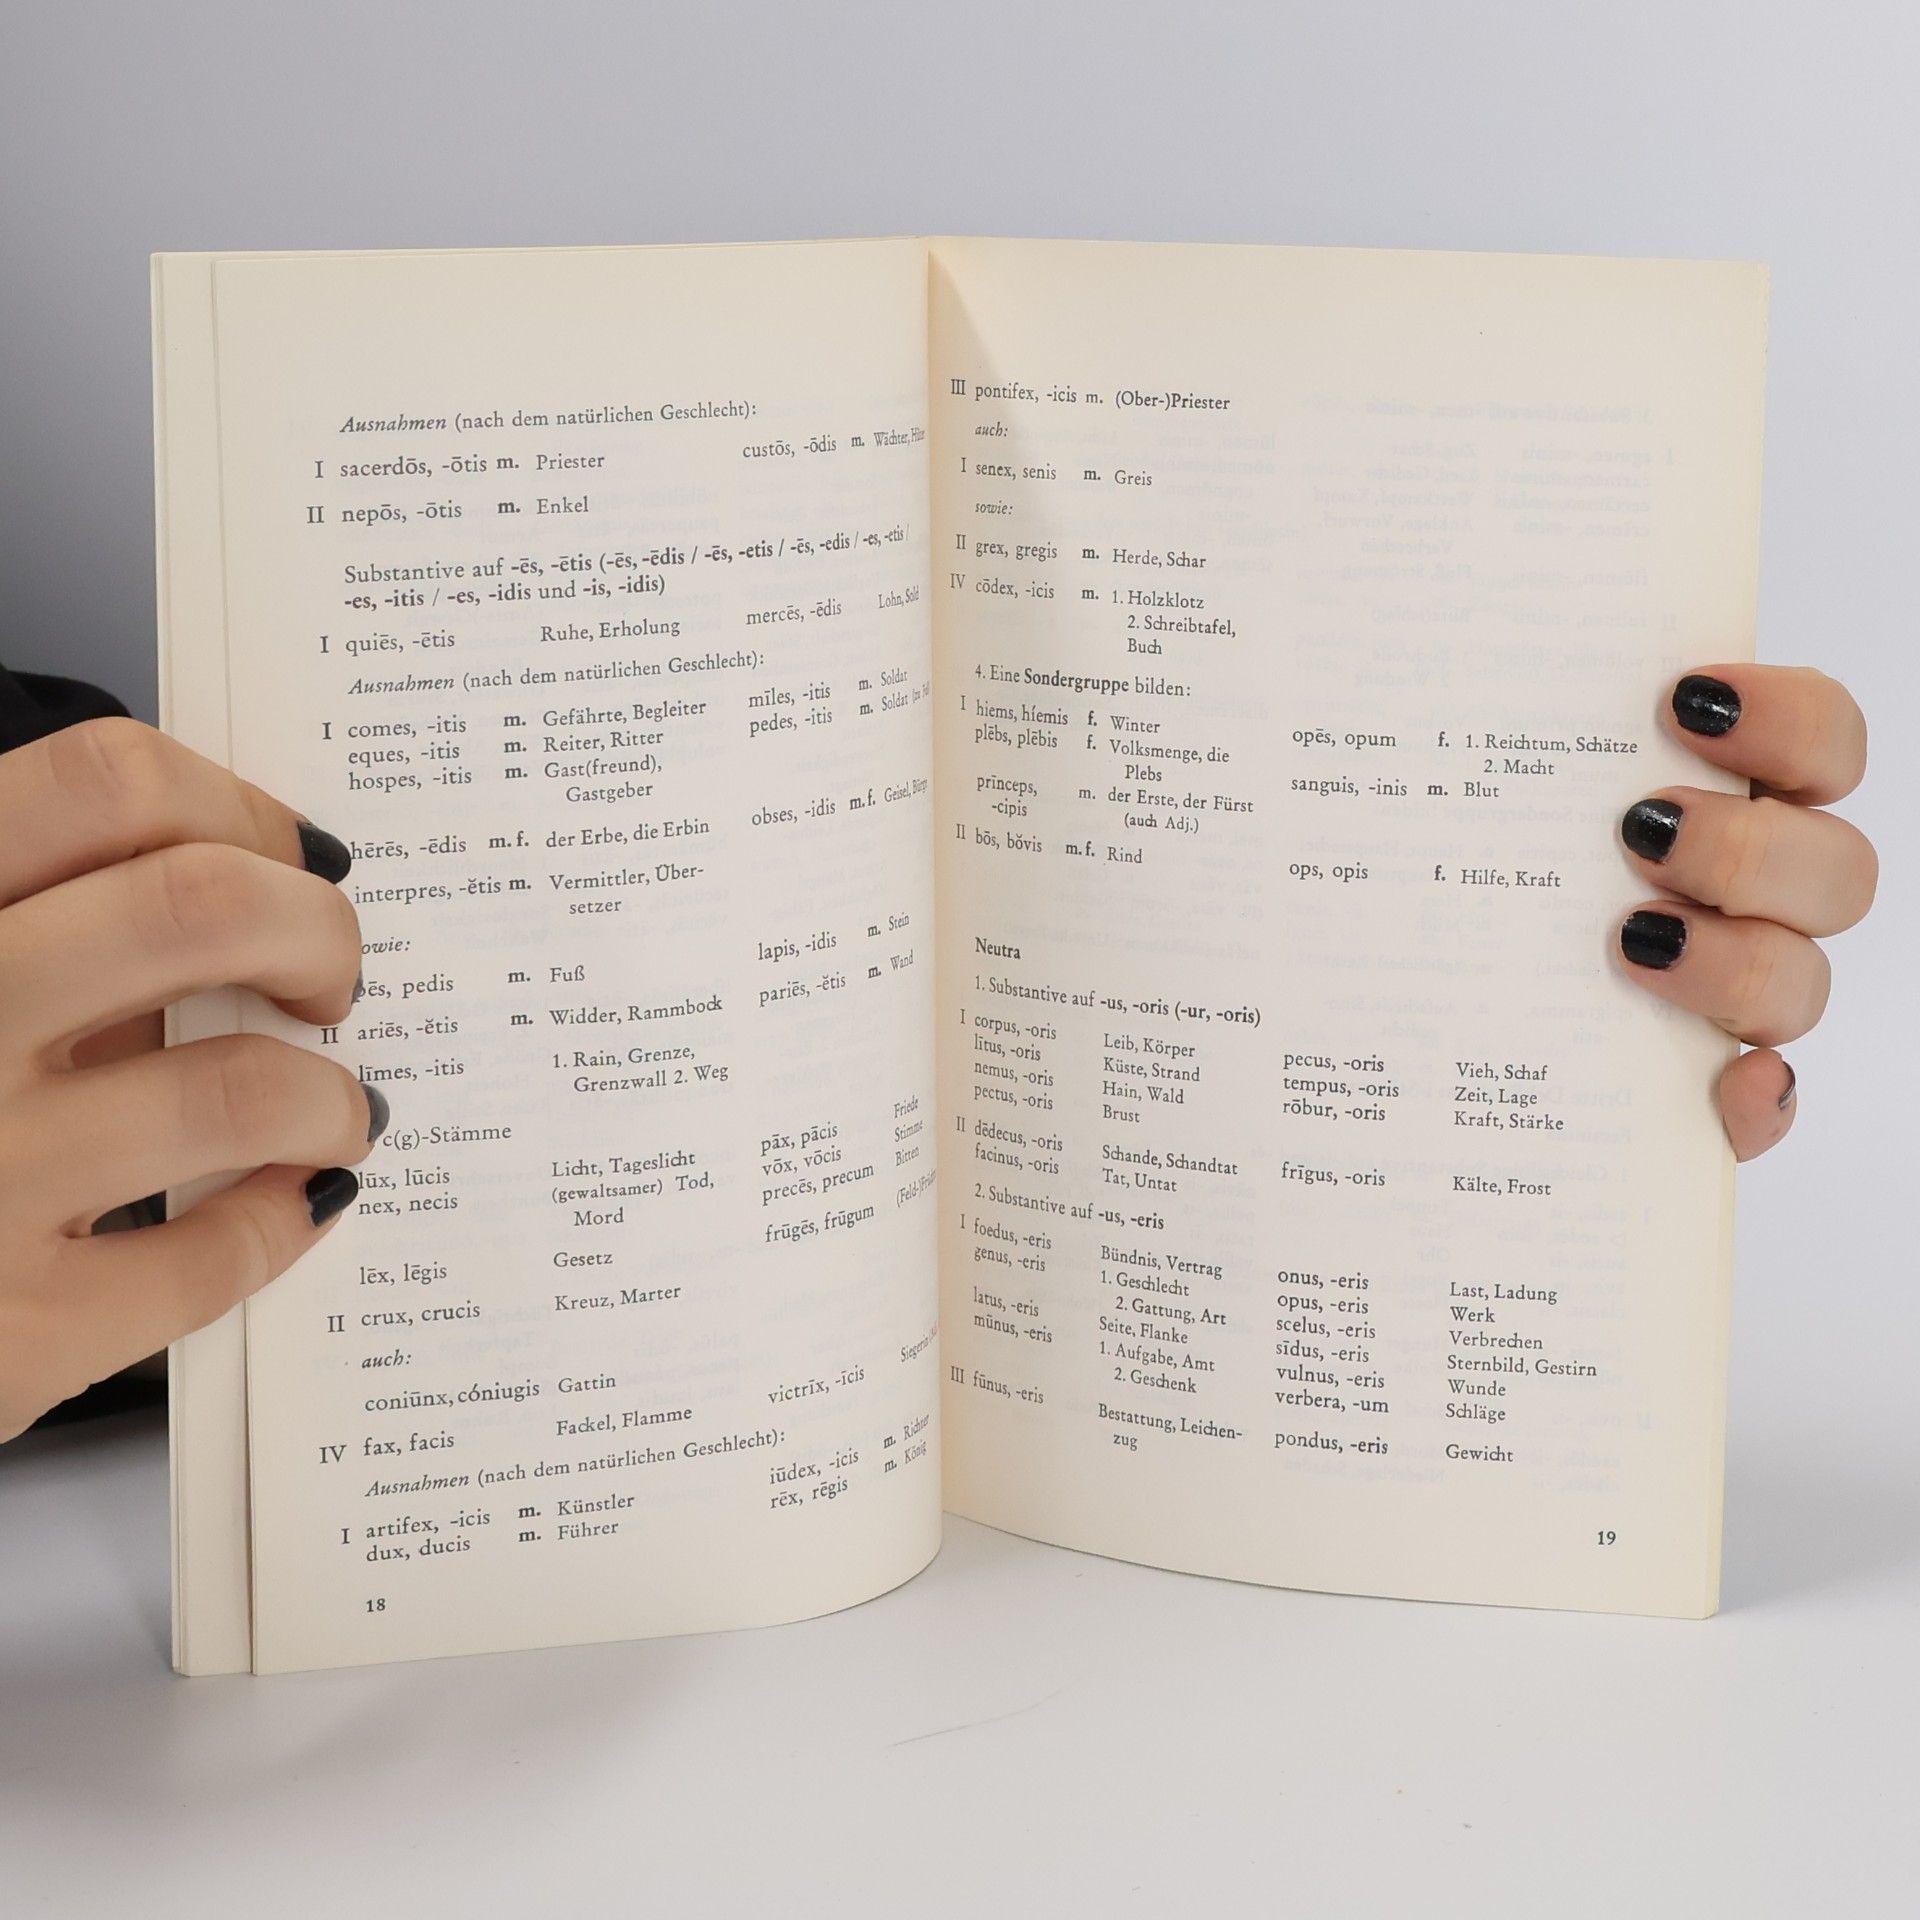 Ausnahmen (nach dem natürlichen Geschlecht):
I sacerdōs, -ōtis m. Priester custōs, -ōdis m. Wächter,
II nepōs, -ōtis m. Enkel
Substantive auf -ēs, -ētis (-ēs, -ēdis / -ēs, -etis / -ēs, -edis / -es, -etis /
-es, -itis / -es, -idis und -is, -idis)
I quiēs, -ētis Ruhe, Erholung mercēs, -ēdis Lohn, Sold
Ausnahmen (nach dem natürlichen Geschlecht):
I comes, -itis m. Gefährte, Begleiter mīles, -itis m. Soldat
eques, -itis m. Reiter, Ritter pedes, -itis m. Soldat (zu
hospes, -itis m. Gast(freund),
Gastgeber
hērēs, -ēdis m.f. der Erbe, die Erbin obses, -idis m.f. Geisel,
interpres, -ĕtis m. Vermittler, Über-
setzer
owie:
pēs, pedis m. Fuß lapis, -idis m. Stein
II ariēs, -ĕtis m. Widder, Rammbock pariēs, -ĕtis m. Wand
līmes, -itis 1. Rain, Grenze,
Grenzwall 2. Weg
c(g)-Stämme
lūx, lūcis Licht, Tageslicht pāx, pācis Friede
nex, necis (gewaltsamer) Tod, vōx, vōcis Stimme
Mord precēs, precum Bitten
lēx, lēgis Gesetz frūgēs, frūgum
II crux, crucis Kreuz, Marter
auch:
coniūnx, cóniugis Gattin victrīx, -īcis Siegerin
IV fax, facis Fackel, Flamme
Ausnahmen (nach dem natürlichen Geschlecht):
I artifex, -icis m. Künstler iūdex, -icis m. Richter
dux, ducis m. Führer rēx, rēgis m. König
18
III pontifex, -icis m. (Ober-)Priester
auch:
I senex, senis m. Greis
sowie:
II grex, gregis m. Herde, Schar
IV cōdex, -icis m. 1. Holzklotz
2. Schreibtafel,
Buch
4. Eine Sondergruppe bilden:
I hiems, híemis f. Winter opēs, opum f. 1. Reichtum, Schätze
plēbs, plēbis f. Volksmenge, die 2. Macht
Plebs
prīnceps, m. der Erste, der Fürst sanguis, -inis m. Blut
-cipis (auch Adj.)
II bōs, bŏvis m.f. Rind ops, opis f. Hilfe, Kraft
Neutra
1. Substantive auf -us, -oris (-ur, -oris)
I corpus, -oris Leib, Körper pecus, -oris Vieh, Schaf
lītus, -oris Küste, Strand tempus, -oris Zeit, Lage
nemus, -oris Hain, Wald rōbur, -oris Kraft, Stärke
pectus, -oris Brust
II dēdecus, -oris Schande, Schandtat frīgus, -oris Kälte, Frost
facinus, -oris Tat, Untat
2. Substantive auf -us, -eris
I foedus, -eris Bündnis, Vertrag onus, -eris Last, Ladung
genus, -eris 1. Geschlecht opus, -eris Werk
2. Gattung, Art scelus, -eris Verbrechen
latus, -eris Seite, Flanke sīdus, -eris Sternbild, Gestirn
mūnus, -eris 1. Aufgabe, Amt vulnus, -eris Wunde
2. Geschenk verbera, -um Schläge
III fūnus, -eris Bestattung, Leichen- pondus, -eris Gewicht
zug
19